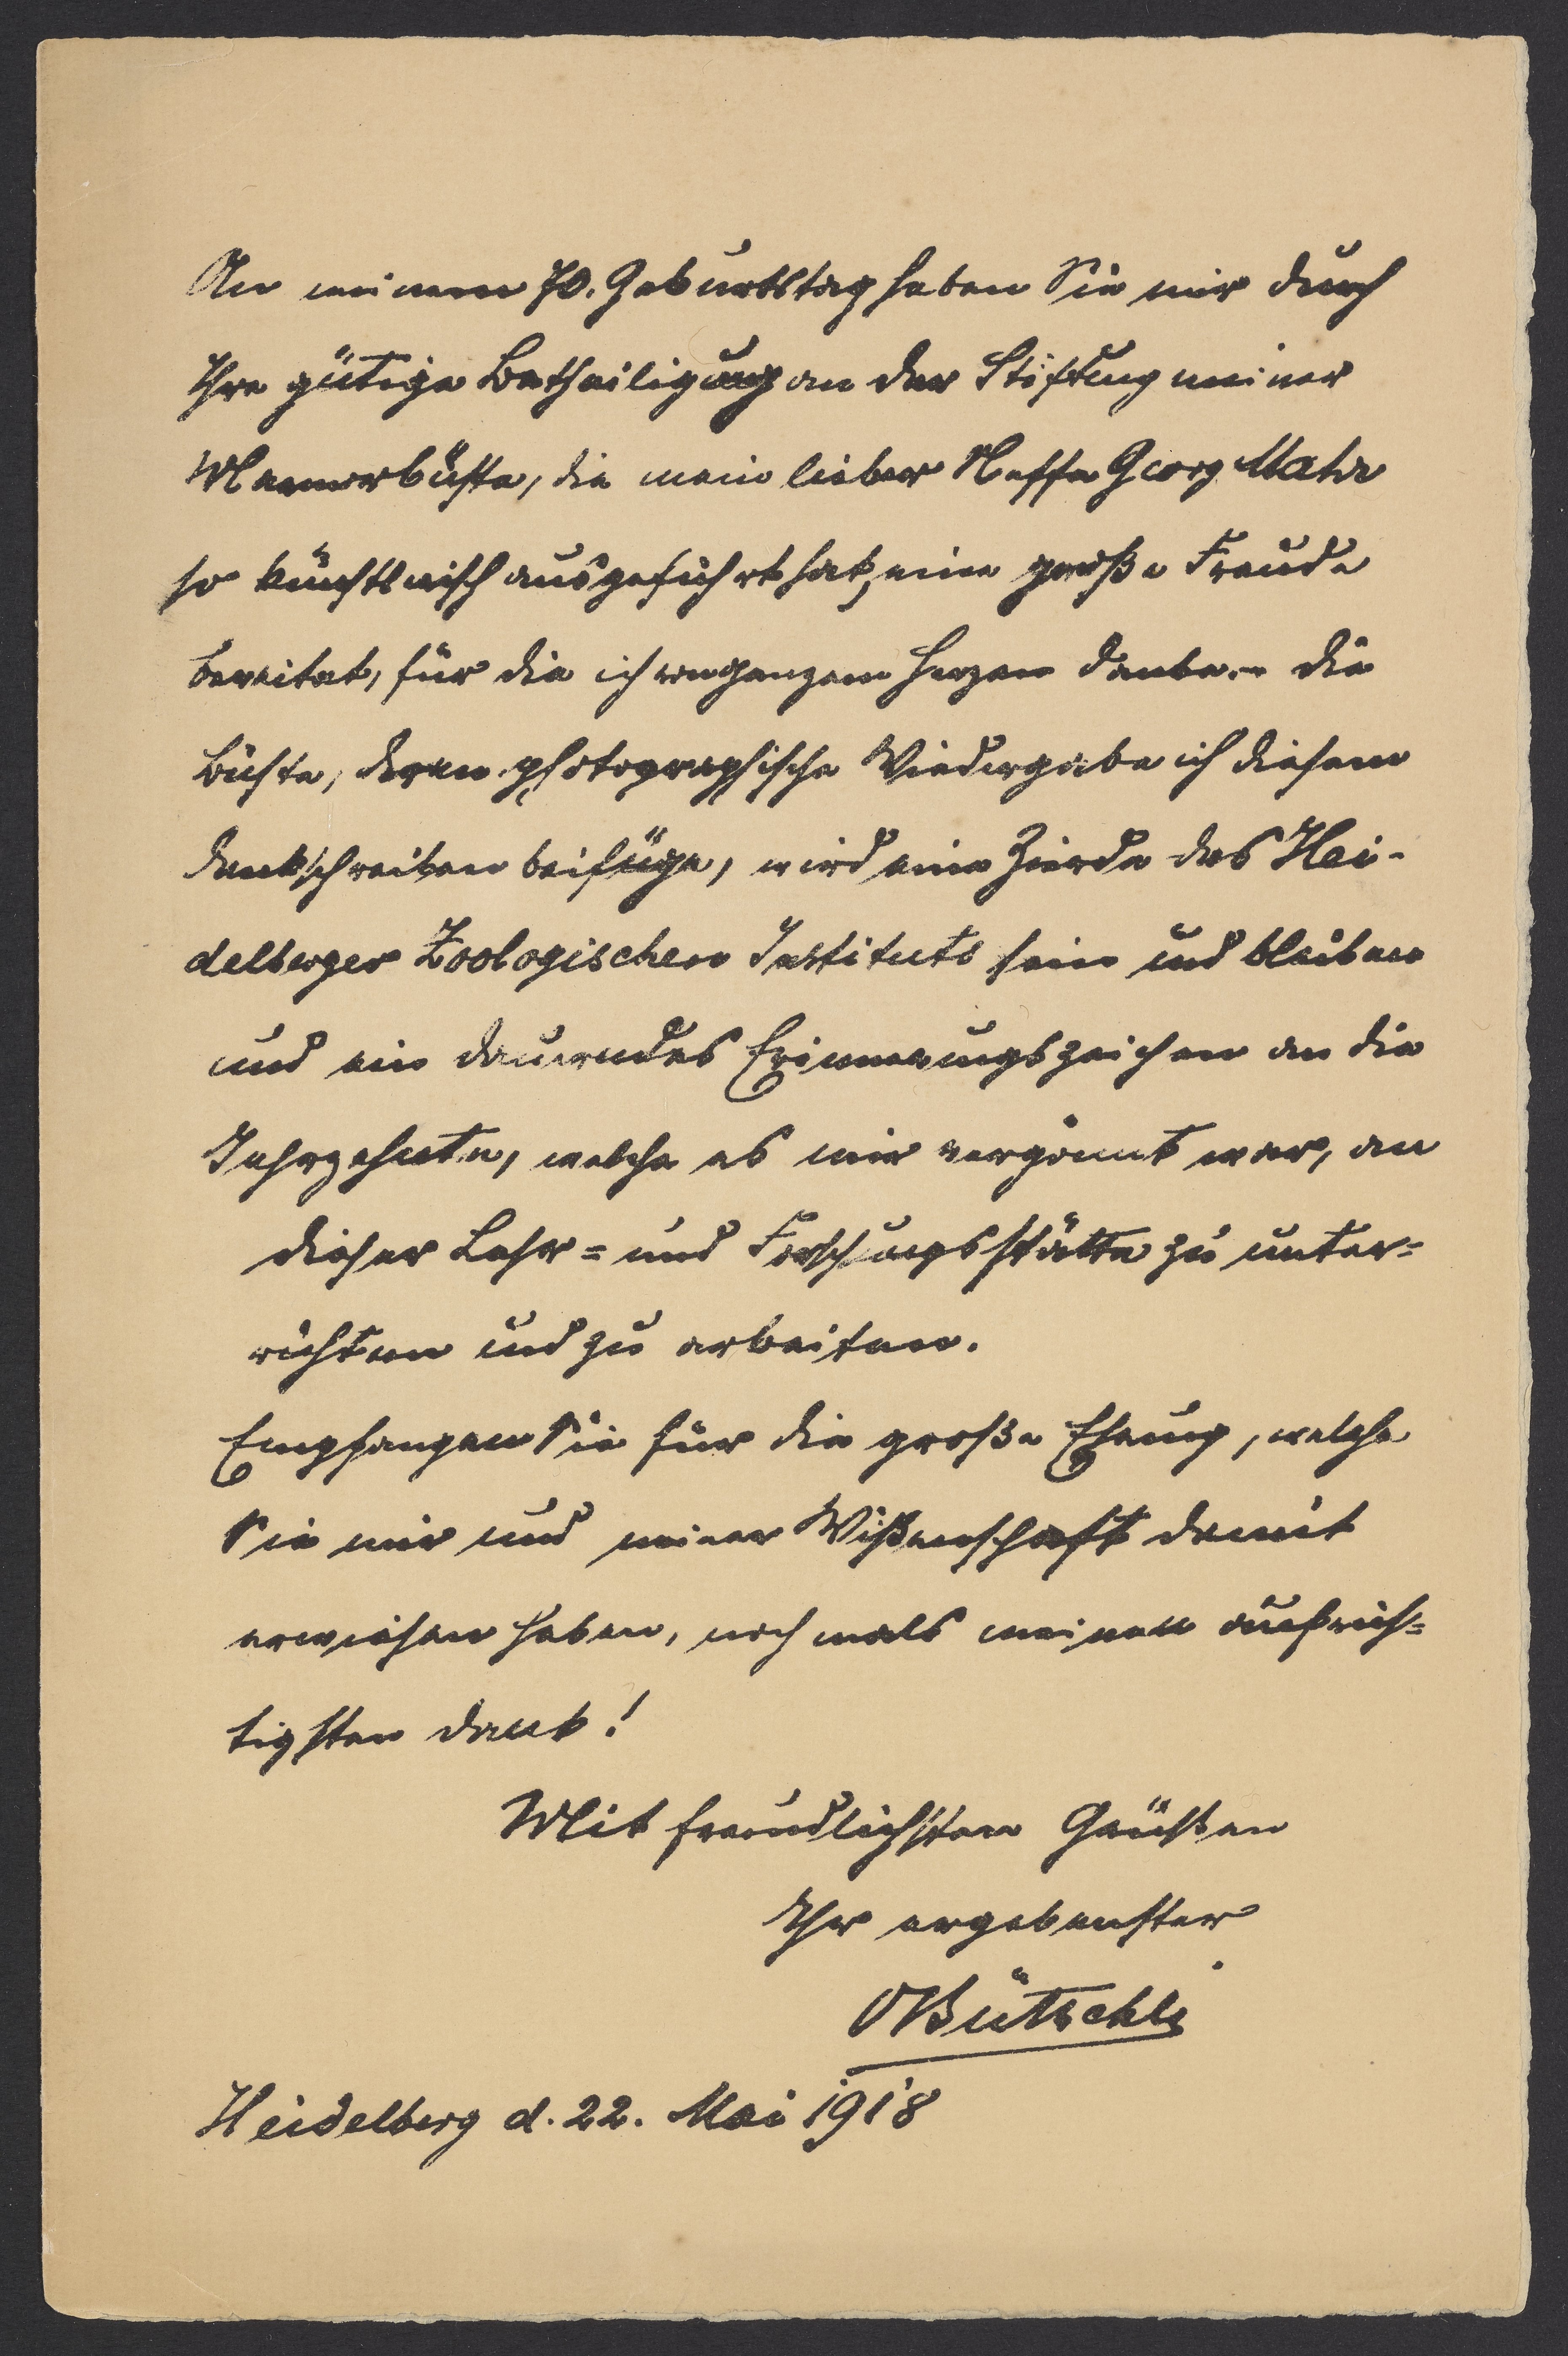 An meinem 70. Geburtstag haben Sie mir durch
Ihre gütige Betheiligung an der Stiftung meiner
Marmorbüste, die mein lieber Neffe Georg Mahr
so künstlerisch ausgeführt hat, eine große Freude
bereitet, für die ich von ganzem Herzen danke. – Die
Büste, deren photographische Wiedergabe ich diesem
Dankschreiben beifüge, wird eine Zierde des Hei-
delberger Zoologischen Instituts sein und bleiben
und ein dauerndes Erinnerungszeichen an die
Jahrzehnte, welche es mir vergönnt war, an
dieser Lehr= und Forschungsstätte zu unter=
richten und zu arbeiten.
Empfangen Sie für die große Ehrung, welche
Sie mir und meiner Wißenschaft damit
erwiesen haben, nochmals meinen aufrich=
tigsten Dank!
Mit freundlichsten Grüßen
Ihr ergebenster
OBütschli
Heidelberg d. 22. Mai 1918